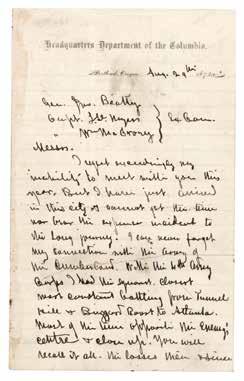 Headquarters Department of the Columbia.
Portland, Oregon Aug. 29th 187
Gen. Jno. Beatty
Capt. J.W. Myers } Ex Com.
" Wm McCrory
Messrs.
I regret exceedingly my
inability to meet with you this
year. But I have just arrived
in this city & cannot get the time
nor bear the expense incident to
the long journey. I can never forget
my connection with the Army of
the Cumberland. With the 4th Army
Corps I had the severest, closest
most constant battling from Tunnel
Hill & Buzzard Roost to Atlanta.
Most of the time opposite the Enemy's
centre & close up. You will
recall it all. The losses then & since